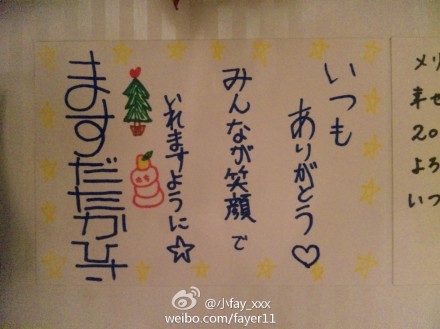 いつも
ありがとう♡
みんなが笑顔で
いれますように☆
ますだたかひさ
メリ
幸せ
20
よろ
いつ
@小fay_xxx
weibo.com/fayer11